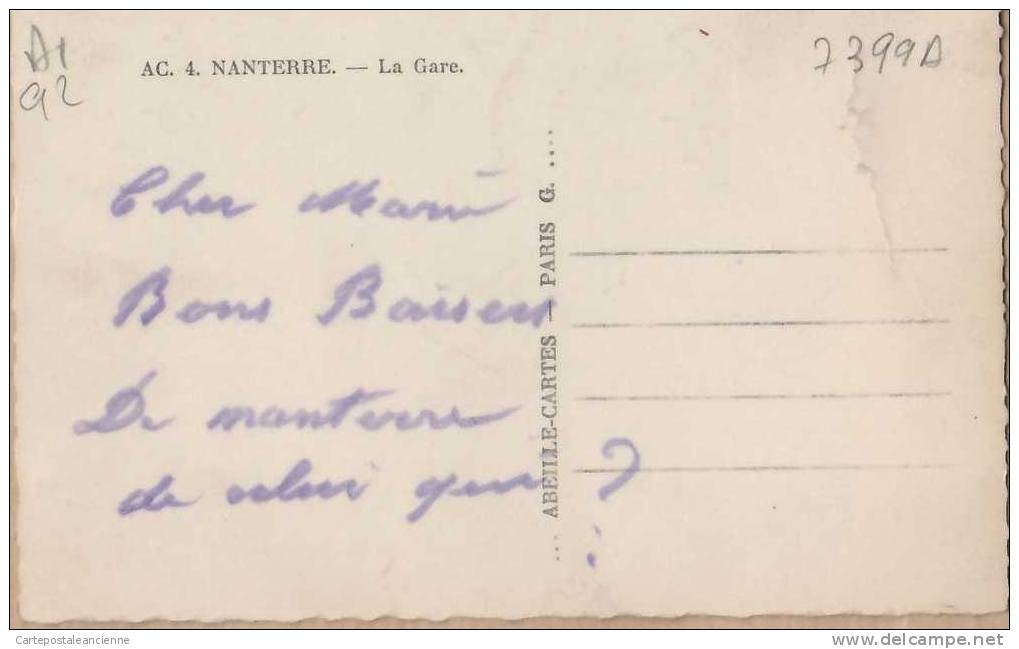 A1
92
AC. 4. NANTERRE. — La Gare.
7399A
Cher Marie
Bons Baisers
De nanterre
de celui qui ?
... ABEILLE-CARTES — PARIS G. ....
Cartepostaleancienne
www.delcampe.net